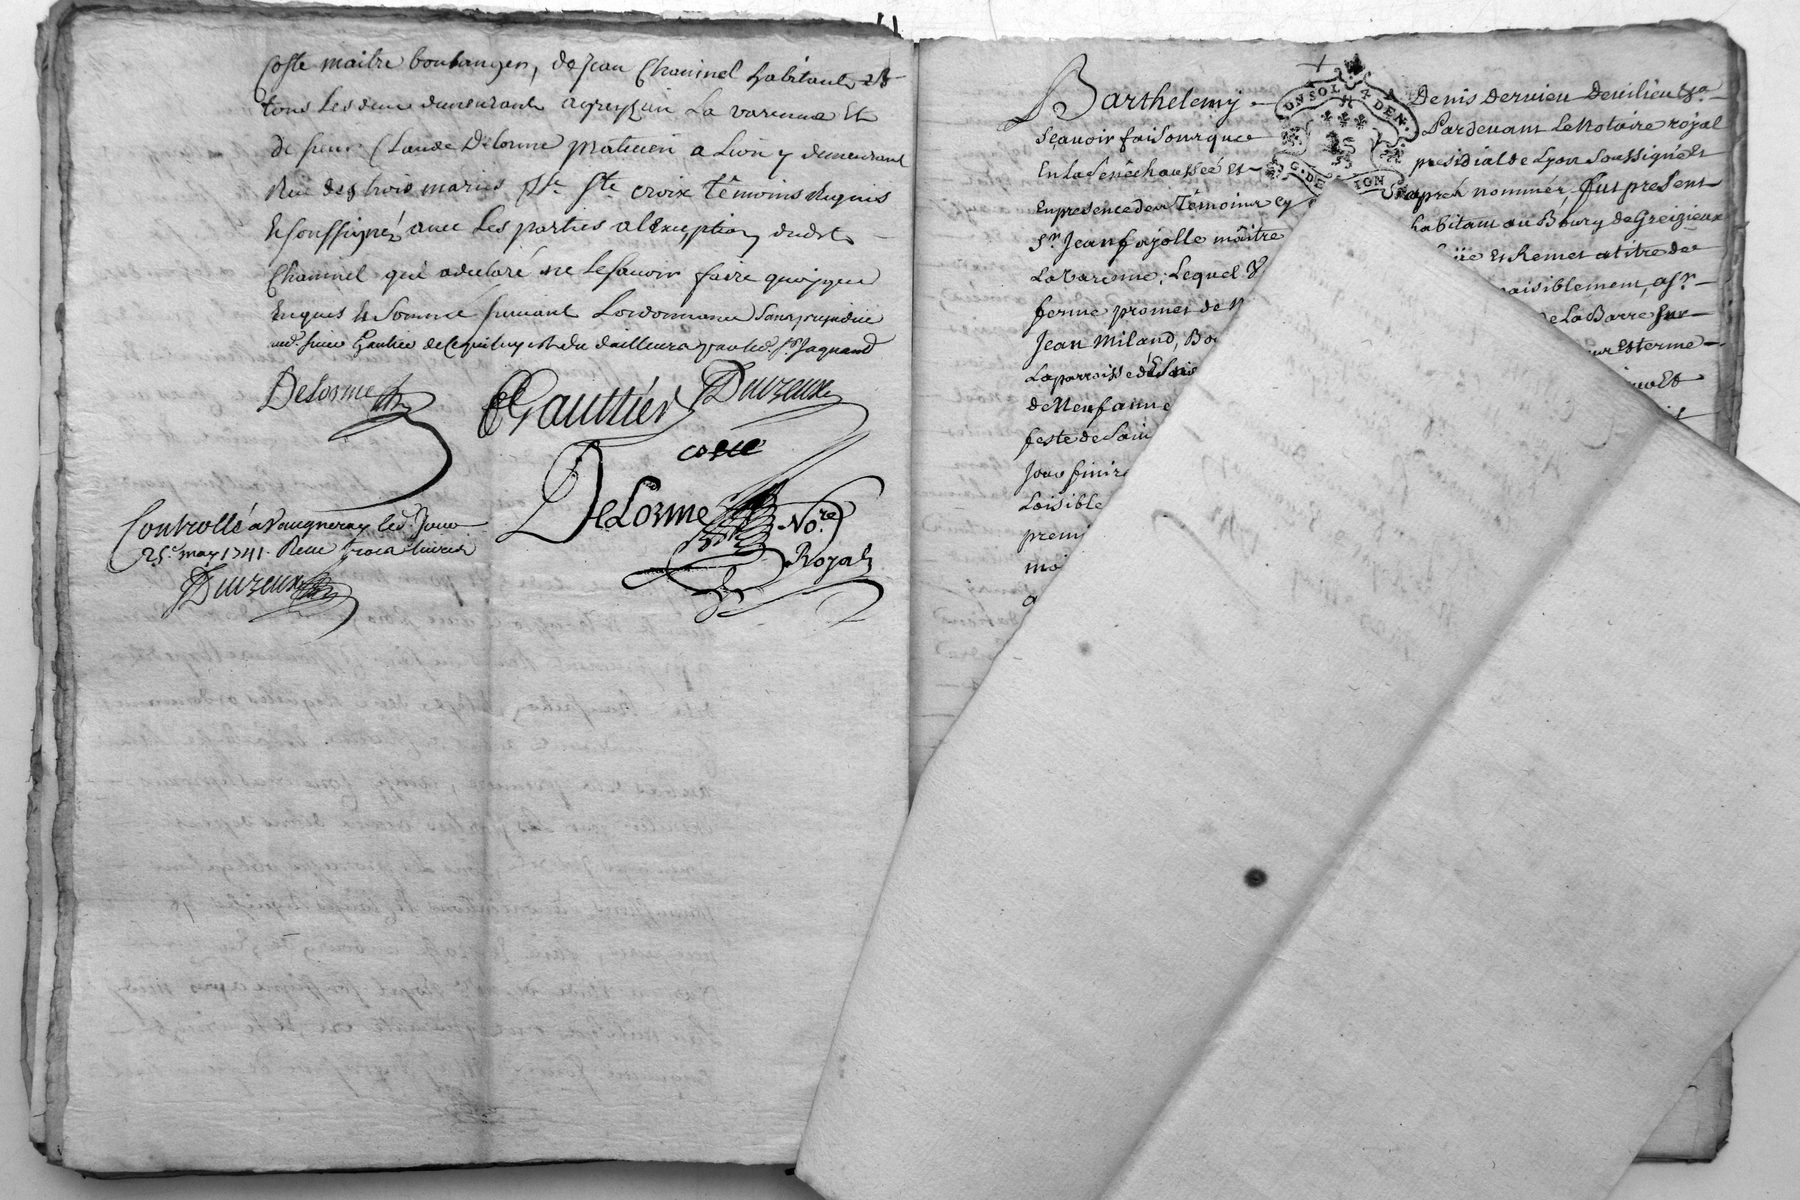 Coste maitre boulanger, de Jean Chaninel habitant et
tous les deux demeurant a greyzieu La varenne Et
de sieur Claude Delorme praticien a Lion y demeurant
Rue des trois maries psse Ste croix têmoins Requis
Et soussignéz avec Les parties a lException dudt
Chaninel qui a declaré ne le savoir faire quoyque
Enquis et Sommé suivant Lordonnance sans prejudice
aud. sieur Gautier de ce qui luy est du dailleurs par led. Sr Jaquand
Delorme Gauttier Duvzeux
coste
DeLorme Nore
Royal
Controllé a Vaugneray led. Jour
25e may 1741. Receu trois livres
Duvzeux
Barthelemy Denis Dervieu Devilieu
UN SOL 4 DEN.
G. DE LION
Sçavoir faisons que Pardevant Le Notaire royal
En la Senêchaussée et presidial de Lyon Soussigné Et
En presence des Têmoins cy aprés nommés fut present
Sr. Jean fajolle maître habitant au Bourg de Greizieux
La Varenne; Lequel Et Remet a titre de
ferme promet de paisiblement,
Jean Miland, de La Barre sur
La parroisse Et terme
de Neuf année Et
feste de Sain
Jour finir
Loisible
premi
moi